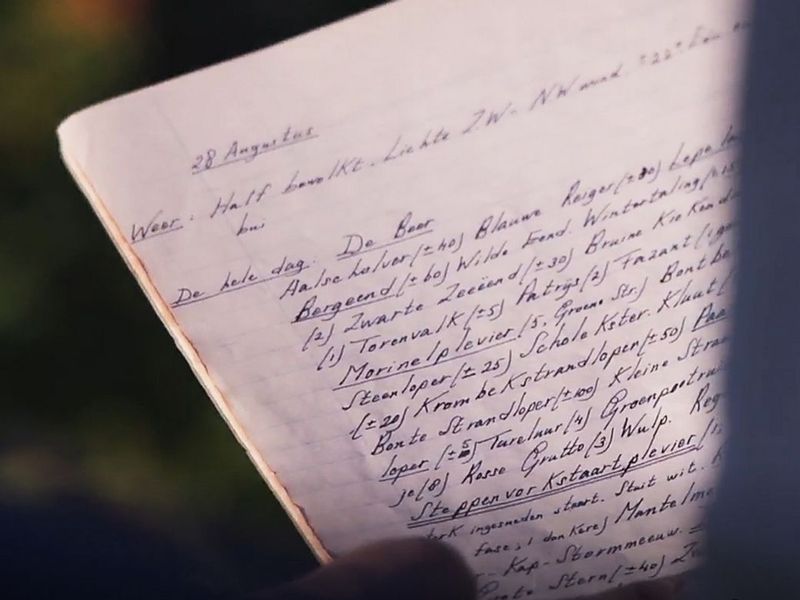 28 Augustus
Weer: Half bewolkt. Lichte Z.W - N.W wind. ±22° Een
bui
De hele dag. De Beer
Aalscholver (±40) Blauwe Reiger (±30) Lepelaar
Bergeend (±60) Wilde Eend. Wintertaling (±15
(2) Zwarte Zeeëend (±30) Bruine Kiekendi
(1) Torenvalk (±5) Patrijs (2) Fazant (
Morinelplevier (5, Groene Str.) Bontbe
Steenloper (±25) Scholekster. Kluut (
(±20) Krombekstrandloper (±50) Paa
Bonte Strandloper (±100) Kleine Stran
loper (±5) Tureluur (4) Groenpootrui
je (8) Rosse Grutto (3) Wulp. Reg
Steppenvorkstaartplevier (1,
ingesneden staart. Stuit wit.
fase, 1 donkere) Mantelme
Kap-Stormmeeuw.
Grote Stern (±40) Zw